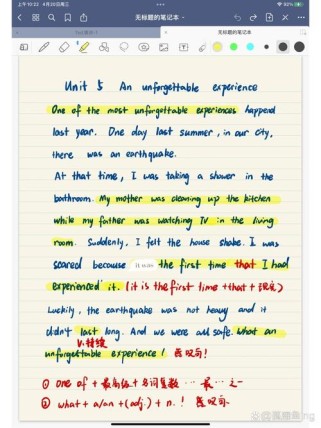 上午10:22 4月20日周三
92%
无标题的笔记本
无标题的笔记本
Unit 5 An unforgettable experience
One of the most unforgettable experiences happend
last year. One day last summer, in our city,
there was an earthquake.
At that time, I was taking a shower in the
bathroom. My mother was cleaning up the kitchen
while my father was watching TV in the living
room. Suddenly, I felt the house shake. I was
scared becouse the first time that I had
experienced it. (it is the first time +that+
Luckily, the earthquake was not heavy and it
didn't last long. And we were all safe. What an
V.持续
unforgettable experience! 感叹句!
① one of + 最高级 + 名词复数 … 最 … 之一
② what + a/an +(adj.) + n. ! 感叹句